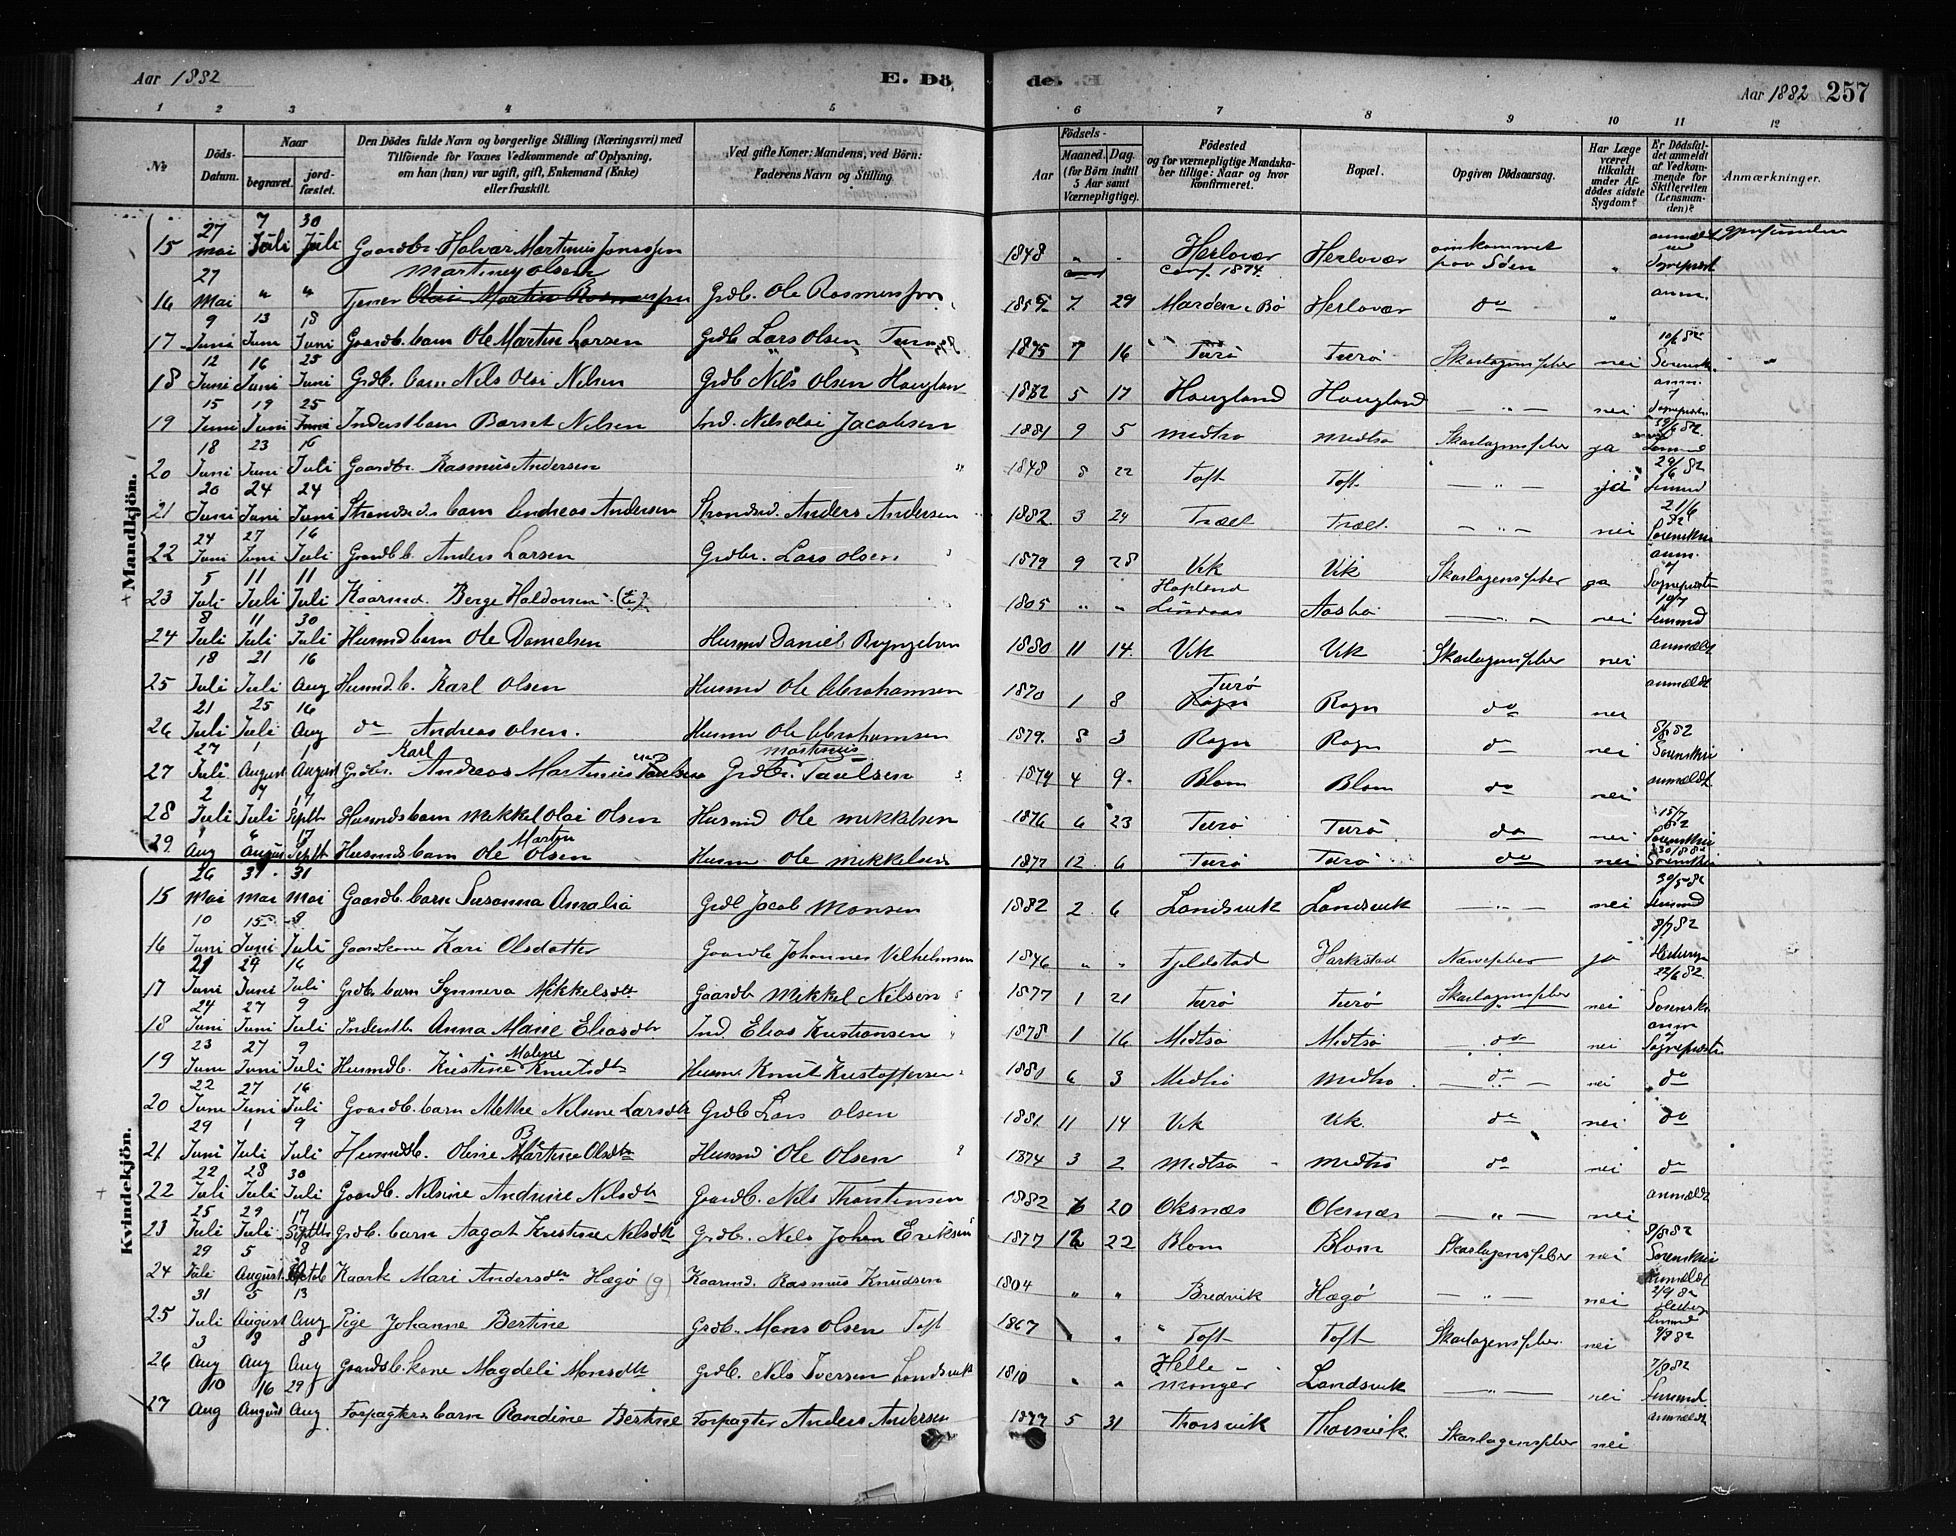 Aar 1882 E. Dö de. Aar 1882 257
1 2 3 4 5 6 7 8 9 10 11 12
№ Döds-Datum. Naar begravet. jordfæstet. Den Dödes fulde Navn og borgerlige Stilling (Næringsvei) med Tilföiende for Voxnes Vedkommende af Oplysning, om han (hun) var ugift, gift, Enkemand (Enke) eller fraskilt. Ved gifte Koner: Mandens, ved Börn: Faderens Navn og Stilling. Födsels- Aar Maaned. Dag. (for Börn indtil 5 Aar samt Værnepligtige). Födested og for værnepligtige Mandskaber tillige: Naar og hvor konfirmeret. Bopæl. Opgiven Dödsaarsag. Har Læge været tilkaldt under Afdödes sidste Sygdom? Er Dödsfaldet anmeldt af Vedkommende for Skifteretten (Lensmanden)? Anmærkninger.
Mandkjön.
15 27 Mai 7 Juli 30 Juli Gaardbr. Halvar Martinus Jonassen 1848 " . Herlovær Herlovær omkommet paa Söen "
16 27 Mai " " Tjener Martiney Olsen Grdb. Ole Rasmussen 7 29 Marden i Bø conf. 1874 Herlovær do " anm.
17 9 Juni 13 Juni 18 Juni Gaardb. barn Ole Martin Larsen Grdb Lars Olsen Turø 1875 7 16 Turö Turö Skarlagensfeber nei 10/6 82 Sorensk.
18 12 Juni 16 Juni 25 Juni Grdb. barn Nils Olai Nilsen Grdb Nils Olsen Hougland 5 17 Hougland Hougland — " — nei anm.
19 15 Juni 19 Juni 25 Juni Inderstbarn Bernt Nelsen Ind. Nils Olai Jacobsen 1881 9 5 Medtsø Medtsø Skarlagensfeber ja
20 18 Juni 23 Juni 16 Juli Gaardbr. Rasmus Andersen 1848 8 22 Toft Toft — " — ja 29/6 82 Lensmd
21 20 Juni 24 Juni 24 Juni Strands. d. barn Andreas Andersen Strandsd. Anders Andersen 1882 3 24 Træl Træl — " — nei 21/6 82 Sorenskri
22 24 Juni 27 Juni 16 Juli Gaardb b. Anders Larsen Grdbr. Lars Olsen 1879 9 28 Vik Vik Skarlagensfeber ja anm. Sognepresten
23 5 Juli 11 Juli 11 Juli Kaarmd. Berge Haldorsen 1805 " " Hopland Lindaas Aasbö — " — nei 10/7 Lensmd
24 8 Juli 11 Juli 30 Juli Husmd barn Ole Danielsen Husmd Daniel 1880 11 14 Vik Vik Skarlagensfeber nei anmældt
25 18 Juli 21 Juli 16 Aug Husmd. b. Karl Olsen Husmd Ole Abrahamsen 1870 1 8 Turø Rogn Rogn do nei anmældt
26 21 Juli 25 Juli 16 Aug do Andreas Olsen. Husmd Ole Abrahamsen 1879. 8 3 Rogn Rogn do nei 8/8 82 Sorenskri
27 27 Juli 1 August 1 August Grdbr. Karl Andreas Martinus Paulsen Grdbr. Martinus Paulsen 1879 4 9 Blom Blom do nei anmældt
28 2 Juli 7 Juli 17 Septbr Husmdsbarn Mekkel Olai Olsen Husmd Ole Mekkelsen 1876 6 23 Turö Turö do nei 15/7 82 Sorenskri
29 1 Aug 6 August 17 Sept Husmdsbarn Ole Martin Olsen Husm. Ole Mikkelsen 1877 12 6 Turö Turö do nei Sorenskri
Kvindekjön.
15 26 Mai 31 Mai 31 Mai Gaardb. barn Susanna Amalia Grdb Jacob Monsen 1882 2 6 Landsvik Landsvik — " — nei 30/5 82 Lensmd
16 10 Juni 15 Juni 9 Juli Gaardkone Kari Olsdatter Gaardb Johannes Vilhelmsen 1846 " " Fjeldstad Harkestad Nervefeber ja 8/7 82
17 21 Juni 29 Juni 16 Juli Grdb. barn Synneva Mikkelsdtr Gaardb Mekkel Nilsen 1877 1 21 Turø Turø Skarlagensfeber nei 22/6 82 Sorenskr
18 24 Juni 27 Juni 9 Juli Inderstb. Anna Marie Eliasdtr Ind. Elias Kristiansen 1878 1 16 Medtsø Medtsö do nei anm Sognepresten
19 23 Juni 27 Juni 9 Juli Husmdb. Kristine Malene Knutsdtr Husm. Knut Kristoffersen 6 3 Medtsö Medtsö do nei do
20 22 Juni 27 Juni 16 Juli Gaardb. barn Mette Nilsine Larsdtr Grdb Lars Olsen 1881 11 14 Vik Vik. do nei do
21 29 Juni 1 Juli 9 Juli Husmdb. Oline B Martine Olsdtr Husmd Ole Olsen 1874 3 2 Medtsø Medtsö do nei do
22 22 Juli 28 Juli 30 Juli Gaardb. Nilsine Andrine Nilsdtr Gaardb. Nils Thorstensen 1882 6 20 Oksnæs Oksnæs — " — nei anmældt
23 25 Juli 29 Juli 17 Septbr Grdb. barn Aagot Kristine Nilsdtr Grdb. Nils Johan Eriksen 1877 12 22 Blom Blom Skarlagensfeber nei 8/8 82 Sorenskri
24 29 Juli 5 August 8 Octob Kaark Mari Andersdtr Hægø (g) Kaarmd. Rasmus Knudsen 1804 " " Bredvik Hægö — " — nei anmældt
25 31 Juli 5 August 13 Aug Pige Johanne Bertine Grdb. Mons Olsen Toft 1867 " " Toft Toft Skarlagensfeber nei Lensmd 9/8 82
26 3 Aug 8 Aug 8 Aug Gaardb. kone Magdeli Monsdtr Grdb. Nils Iversen Landsvik 1810 " " Helle Manger Landsvik — " — nei 7/8 82 Lensmd
27 10 Aug 16 August 29 Aug Forpagters barn Randine Bertine Forpagter Anders Andersen 1877 5 31 Thorsvik Thorsvik Skarlagensfeber nei anmældt